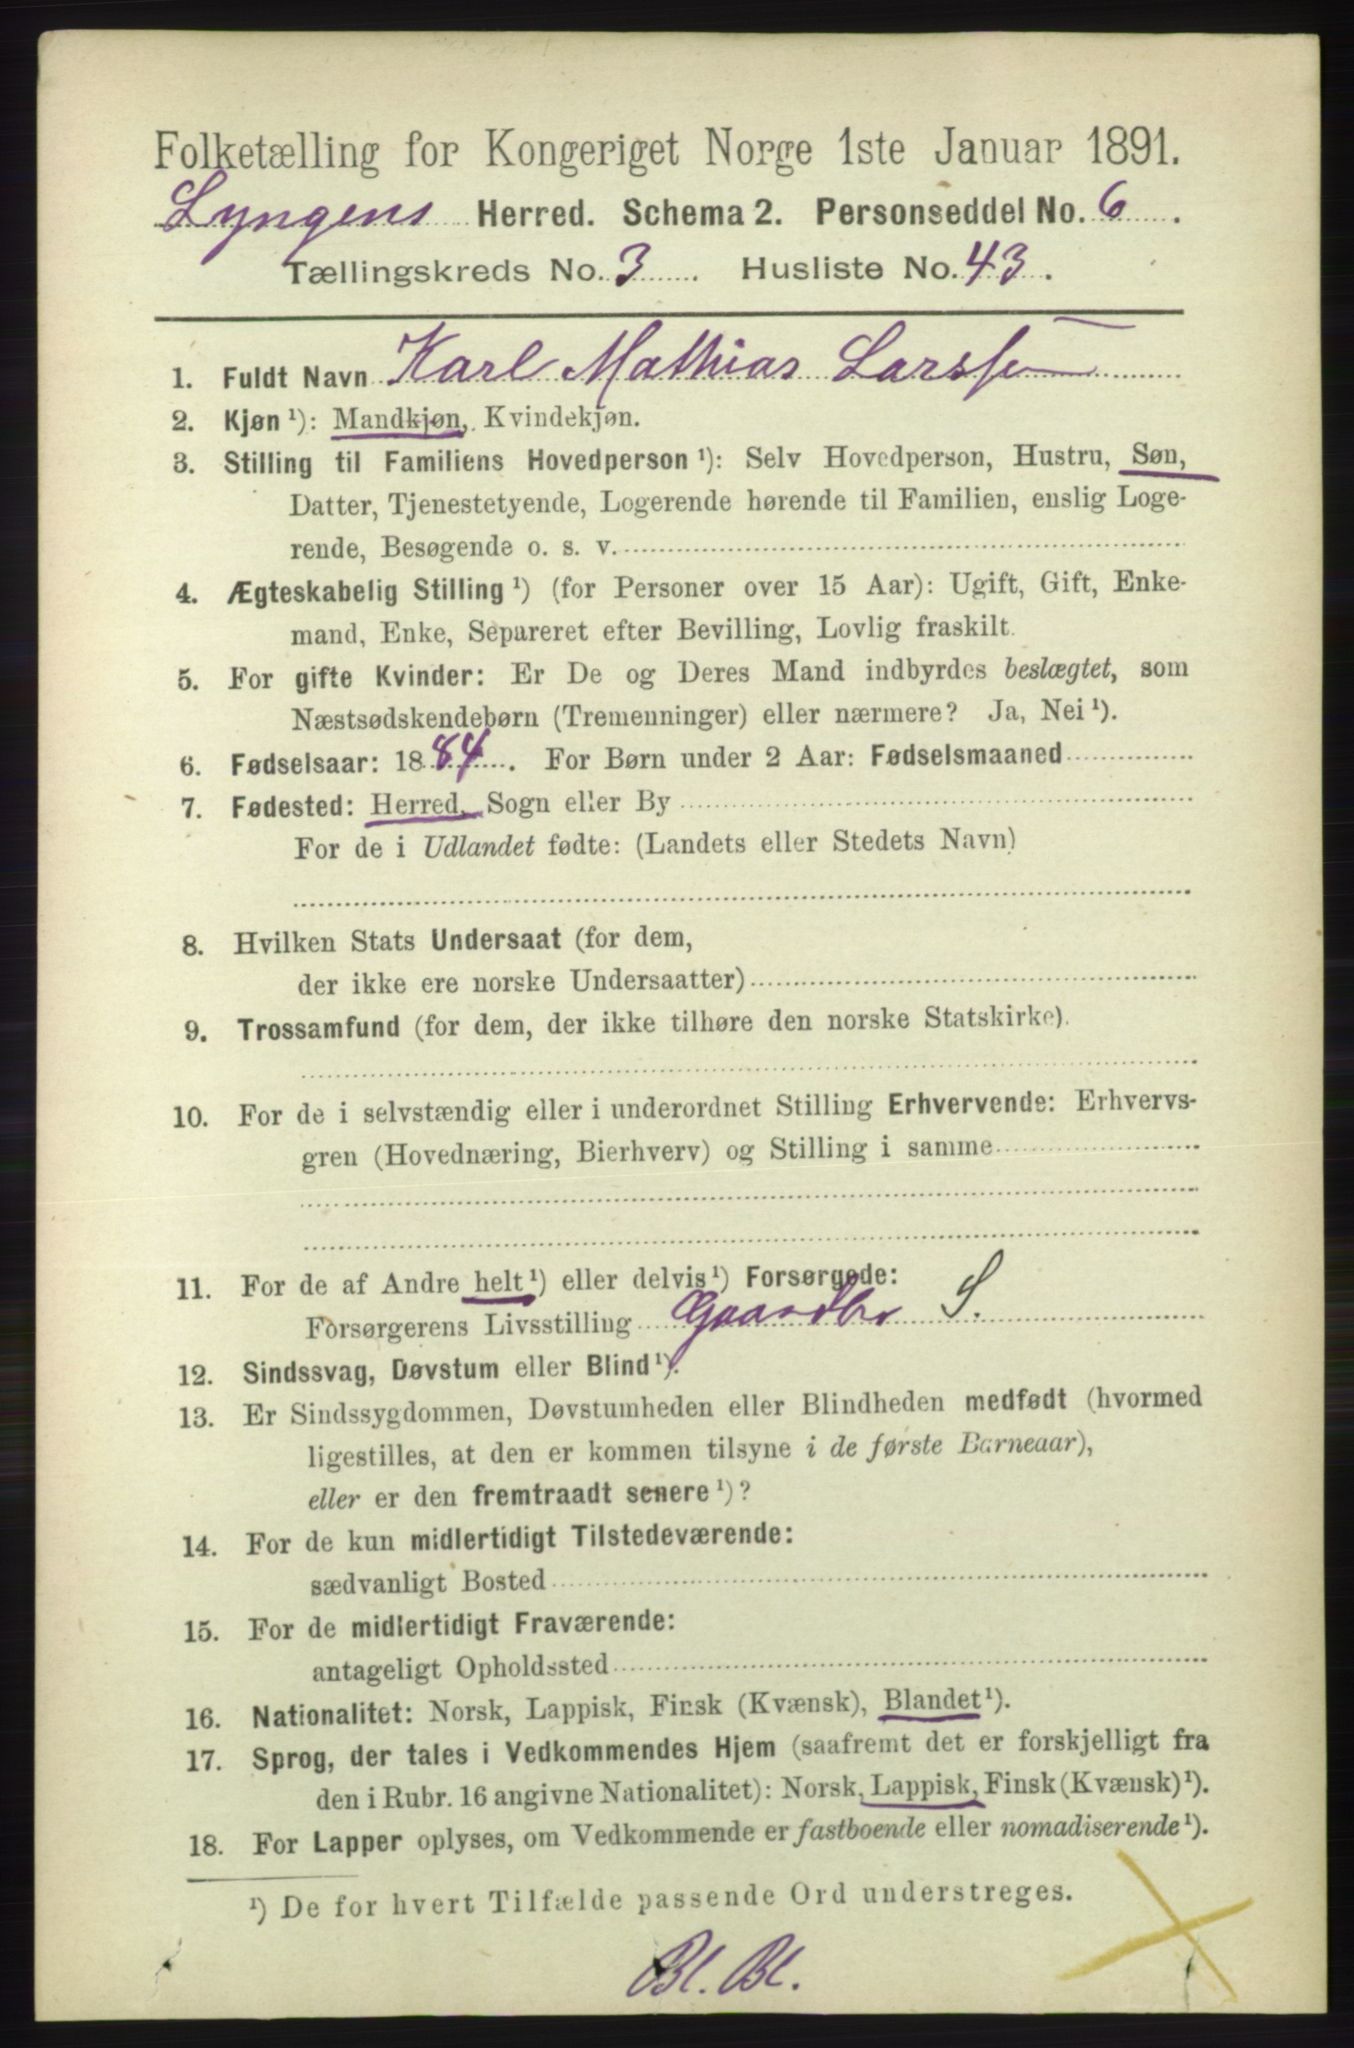 Folketælling for Kongeriget Norge 1ste Januar 1891.
Lyngens Herred. Schema 2. Personseddel No. 6.
Tællingskreds No. 3. Husliste No. 43.
1. Fuldt Navn Karl Mathias Larssen
2. Kjøn ¹): Mandkjøn, Kvindekjøn.
3. Stilling til Familiens Hovedperson ¹): Selv Hovedperson, Hustru, Søn,
Datter, Tjenestetyende, Logerende hørende til Familien, enslig Loge-
rende, Besøgende o. s. v.
4. Ægteskabelig Stilling ¹) (for Personer over 15 Aar): Ugift, Gift, Enke-
mand, Enke, Separeret efter Bevilling, Lovlig fraskilt.
5. For gifte Kvinder: Er De og Deres Mand indbyrdes beslægtet, som
Næstsødskendebørn (Tremenninger) eller nærmere? Ja, Nei ¹).
6. Fødselsaar: 1884. For Børn under 2 Aar: Fødselsmaaned
7. Fødested: Herred, Sogn eller By
For de i Udlandet fødte: (Landets eller Stedets Navn)
8. Hvilken Stats Undersaat (for dem,
der ikke ere norske Undersaatter)
9. Trossamfund (for dem, der ikke tilhøre den norske Statskirke).
10. For de i selvstændig eller i underordnet Stilling Erhvervende: Erhvervs-
gren (Hovednæring, Bierhverv) og Stilling i samme
11. For de af Andre helt ¹) eller delvis ¹) Forsørgede:
Forsørgerens Livsstilling Gaardbr S.
12. Sindssvag, Døvstum eller Blind ¹).
13. Er Sindssygdommen, Døvstumheden eller Blindheden medfødt (hvormed
ligestilles, at den er kommen tilsyne i de første Barneaar),
eller er den fremtraadt senere ¹)?
14. For de kun midlertidigt Tilstedeværende:
sædvanligt Bosted
15. For de midlertidigt Fraværende:
antageligt Opholdssted
16. Nationalitet: Norsk, Lappisk, Finsk (Kvænsk), Blandet ¹).
17. Sprog, der tales i Vedkommendes Hjem (saafremt det er forskjelligt fra
den i Rubr. 16 angivne Nationalitet): Norsk, Lappisk, Finsk (Kvænsk) ¹).
18. For Lapper oplyses, om Vedkommende er fastboende eller nomadiserende ¹).
¹) De for hvert Tilfælde passende Ord understreges.
Bl. Bl.